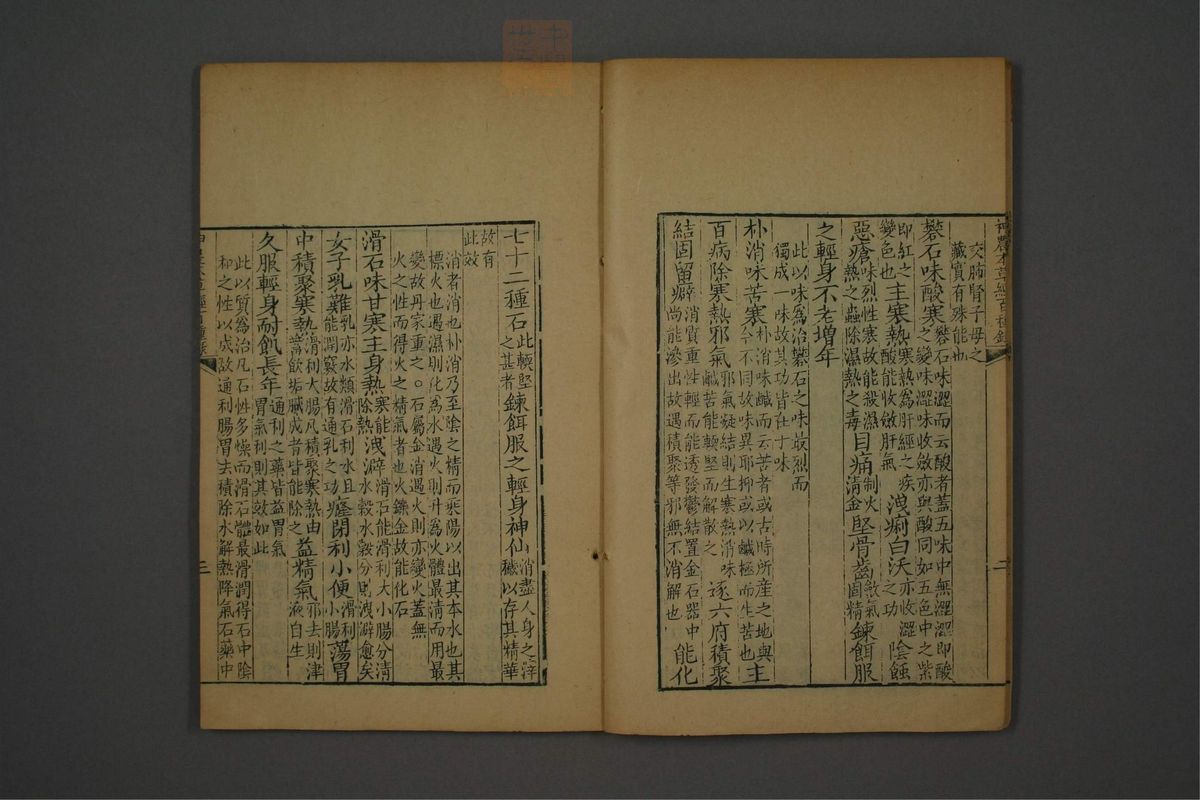 神農本草經百種錄
交肺腎子母之
藏實有殊能也
礬石味酸寒礬石味澀而云酸者蓋五味中無澀澀即酸之變味澀味收斂亦與酸同如五色中之紫
即紅之變色也主寒熱寒熱為肝經之疾酸能收斂肝氣洩痢白沃亦收澀之功陰蝕
惡瘡味烈性寒故能殺濕熱之蟲除濕熱之毒目痛制火清金堅骨齒斂氣固精鍊餌服
之輕身不老增年
此以味為治礬石之味最烈而
獨成一味故其功皆在於味
朴消味苦寒朴消味鹹而云苦者或古時所產之地與今不同故味異耶抑或以鹹極而生苦也主
百病除寒熱邪氣邪氣凝結則生寒熱消味鹹苦能軟堅而解散之逐六府積聚
結固留癖消質重性輕而能透發鬱結置金石器中尚能滲出故遇積聚等邪無不消解也能化
二
七十二種石此軟堅之甚者鍊餌服之輕身神仙消盡人身之滓穢以存其精華
故有
此效
消者消也朴消乃至陰之精而乘陽以出其本水也其
標火也遇濕則化為水遇火則升為火體最清而用最
變故丹家重之。石屬金消遇火則亦變火蓋無
火之性而得火之精氣者也火鑠金故能化石
滑石味甘寒主身熱寒能除熱洩澼滑石能滑利大小腸分清水穀水穀分則洩澼愈矣
女子乳難乳亦水類滑石利水且能開竅故有通乳之功癃閉利小便滑利小腸蕩胃
中積聚寒熱滑利大腸凡積聚寒熱由蓄飲垢膩成者皆能除之益精氣邪去則津液自生
久服輕身耐飢長年通利之藥皆益胃氣胃氣利則其效如此
此以質為治凡石性多燥而滑石體最滑潤得石中陰
和之性以成故通利腸胃去積除水解熱降氣石藥中
三